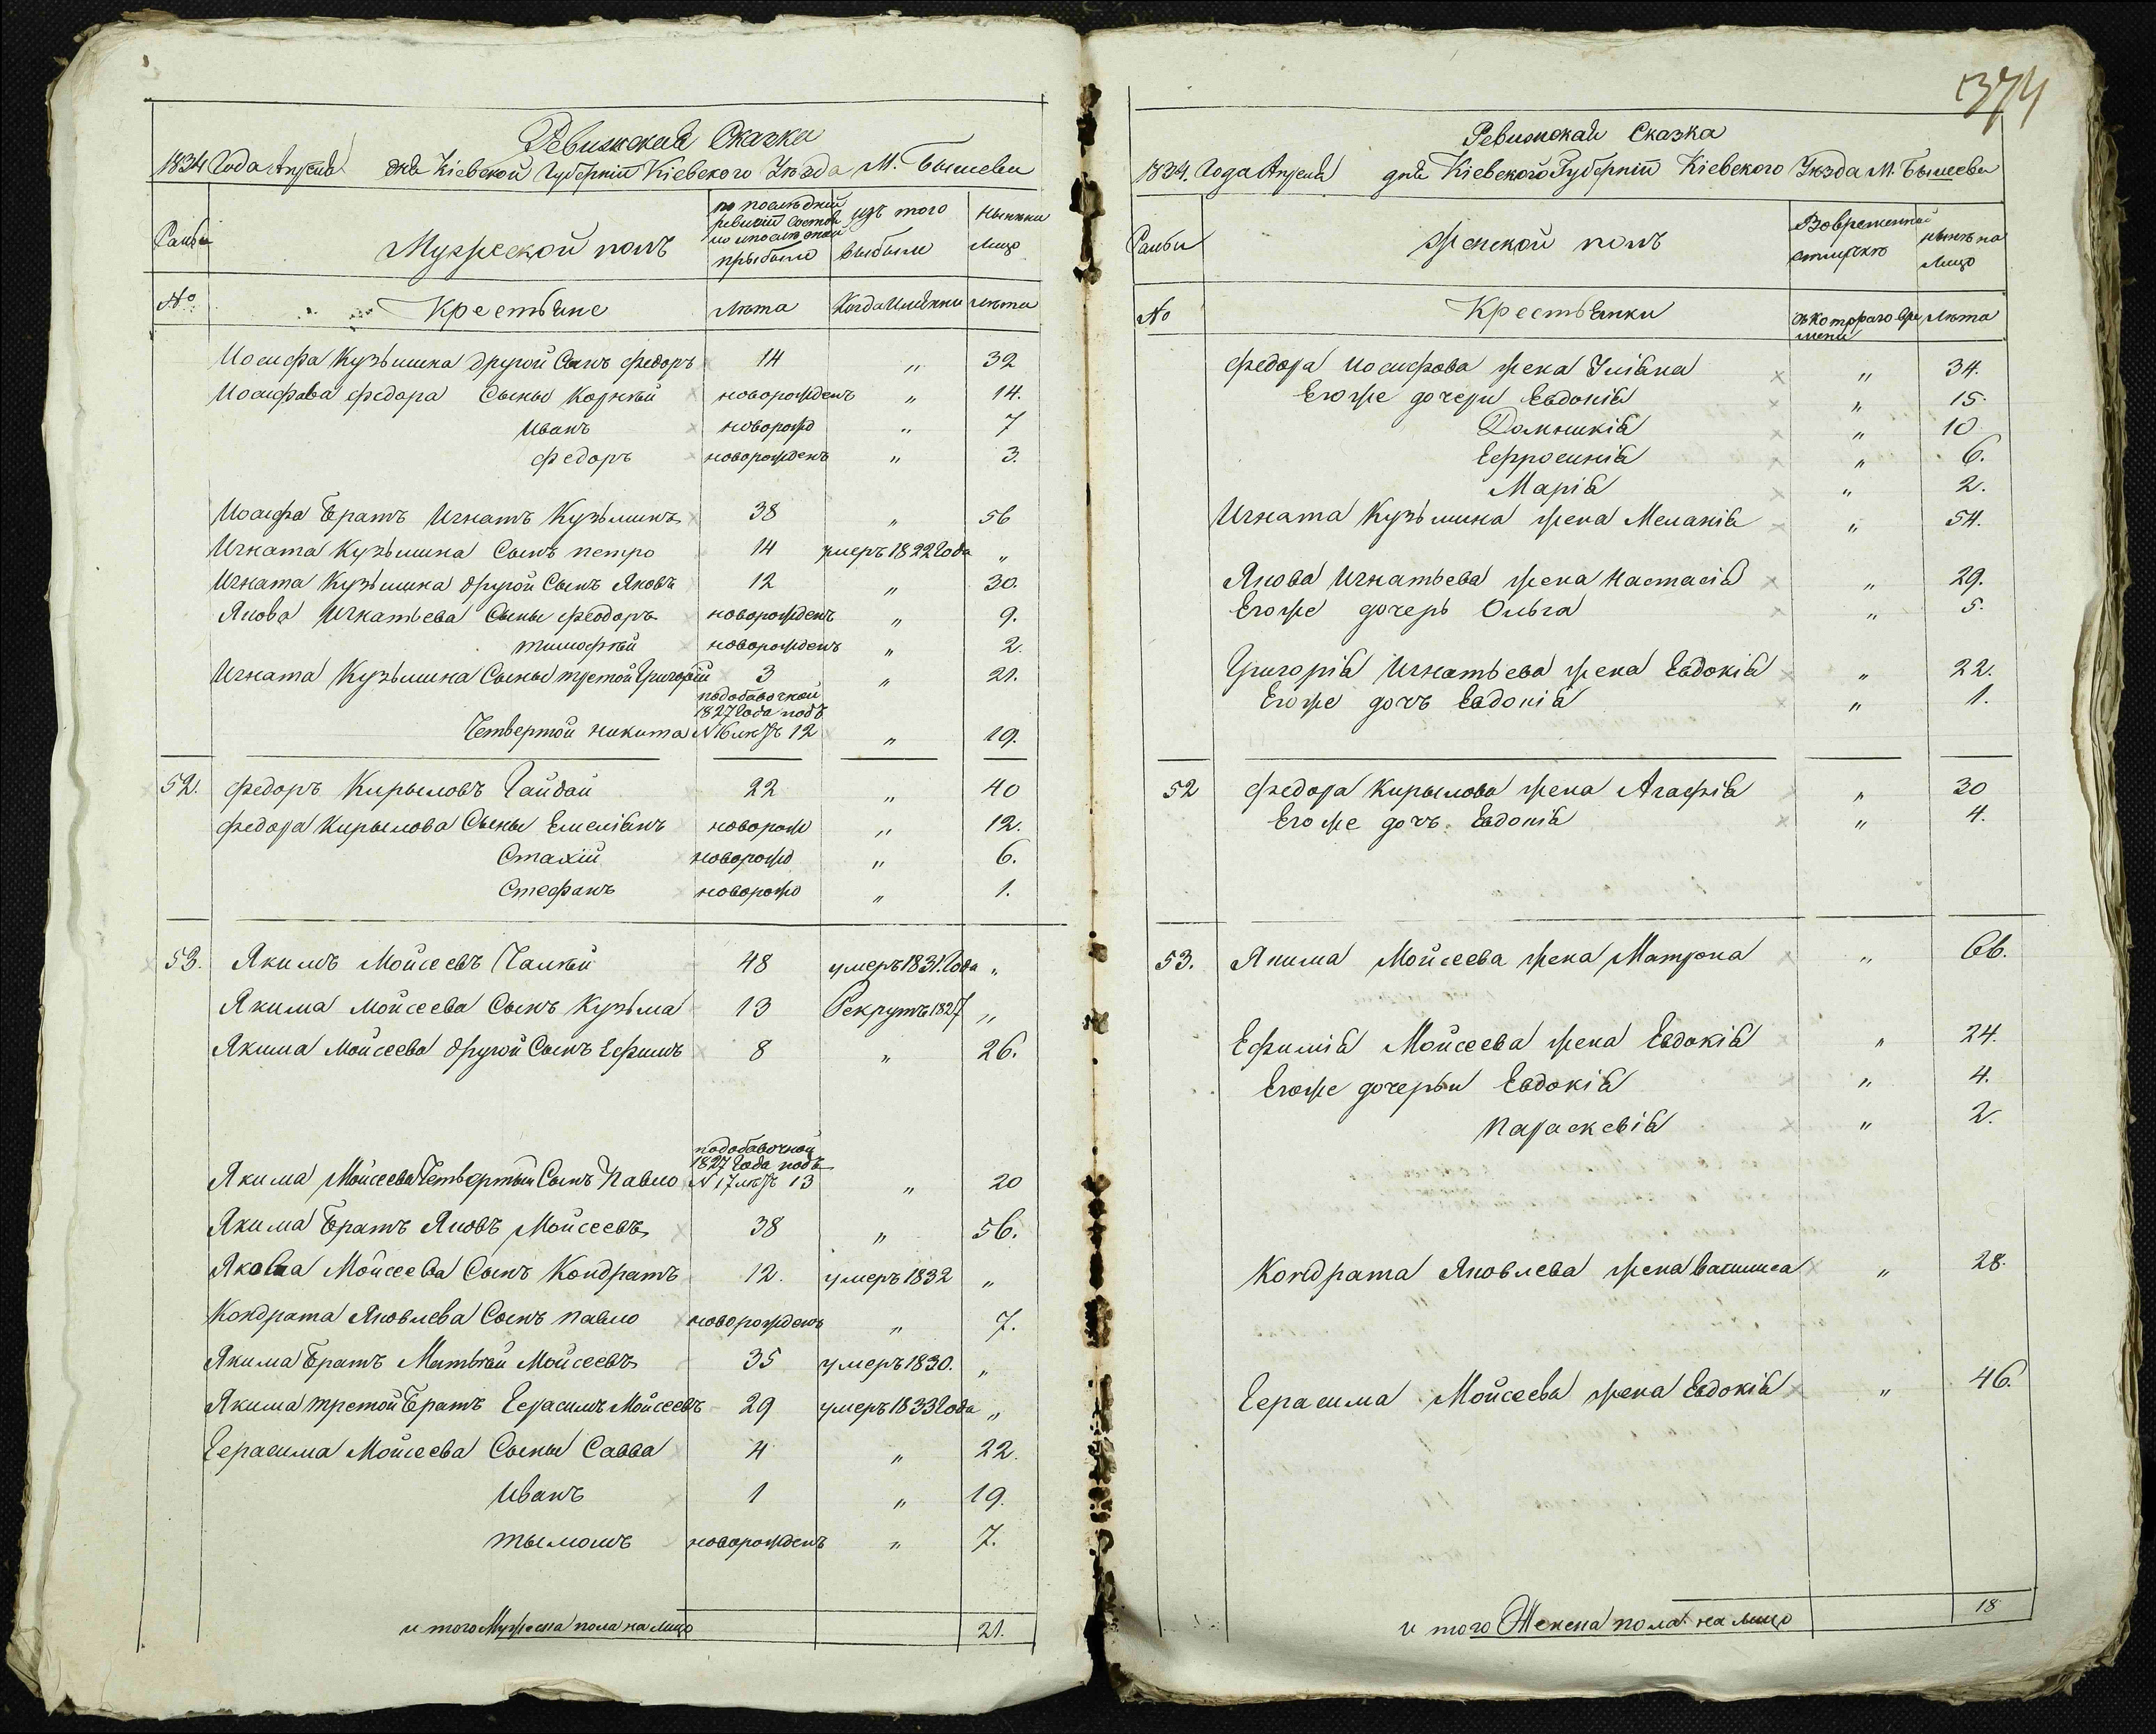 Ревижская Сказка
1834 Года Апреля дня Кіевской Губерніи Кіевского Уезда М. Бышева
Мужеской полъ
по последней ревизіи состояло и после оной прибыло
изъ того выбыло
ныне на лицо
№
Крестьяне
лета
Когда именно
лета
Иосифа Кузьмина другой Сынъ Федоръ 14 „ 32
Иосифова Федора Сыны Корней новорожденъ „ 14.
Иванъ новорожд „ 7
Федоръ новорожденъ „ 3.
Иосифа Братъ Игнатъ Кузьминъ 38 „ 56
Игната Кузьмина Сынъ петро 14 умеръ 1822 Года „
Игната Кузьмина другой Сынъ Яковъ 12 „ 30.
Якова Игнатьева Сыны Феодоръ новорожденъ „ 9.
тимофей новорожденъ „ 2.
Игната Кузьмина Сыны третой Григорій 3 „ 21.
подобавочной
1827 Года подъ
Четвертой никита N 16 летъ 12 „ 19.
52. Федоръ Кирыловъ Гайдай 22 „ 40
Федора Кирылова Сыны Емеліянъ новорож „ 12.
Стахій новорожд „ 6.
Стефанъ новорожд „ 1.
53. Якимъ Мойсеевъ Галкъй 48 умеръ 1831. Года „
Якима Мойсеева Сынъ Кузьма 13 Рекрутъ 1827 „
Якима Мойсеева другой Сынъ Ефимъ 8 „ 26.
подобавочной
1827 Года подъ
Якима Мойсеева Четвертый Сынъ Павло N 17 летъ 13 „ 20
Якима Братъ Яковъ Мойсеевъ 38 „ 56.
Якова Мойсеева Сынъ Кондратъ 12. умеръ 1832 „
Кондрата Яковлева Сынъ павло новорожденъ „ 7.
Якима Братъ Матвъй Мойсеевъ 35 умеръ 1830. „
Якима третой Братъ Герасимъ Мойсеевъ 29 умеръ 1833 Года „
Герасима Мойсеева Сыны Савва 4 „ 22.
Иванъ 1 „ 19.
тымошъ новорожденъ „ 7.
и того Мужеска пола на лицо 21.
374
Ревижская Сказка
1834. Года Апреля дня Кіевского Губерніи Кіевского Уезда М. Бышева
Женской полъ
Вовременной отлучке
ныне на лицо
№
Крестьянки
съ которого времени
лета
Федора Иосифова жена Уліяна „ 34.
Егоже дочери Евдокія „ 15.
Домникія „ 10
Ефросинія „ 6.
Марія „ 2.
Игната Кузьмина жена Меланія „ 54.
Якова Игнатьева жена Настасія „ 29.
Егоже дочерь Ольга „ 5.
Григорія Игнатьева жена Евдокія „ 22.
Егоже дочъ Евдокія „ 1.
52 Федора Кирылова жена Агафія „ 30
Егоже дочъ Евдокія „ 4.
53. Якима Мойсеева жена Матрона „ 66.
Ефимія Мойсеева жена Евдокія „ 24.
Егоже дочерьи Евдокія „ 4.
параскевія „ 2.
Кондрата Яковлева жена Василиса „ 28.
Герасима Мойсеева жена Евдокія „ 46.
и того Женска пола на лицо 18